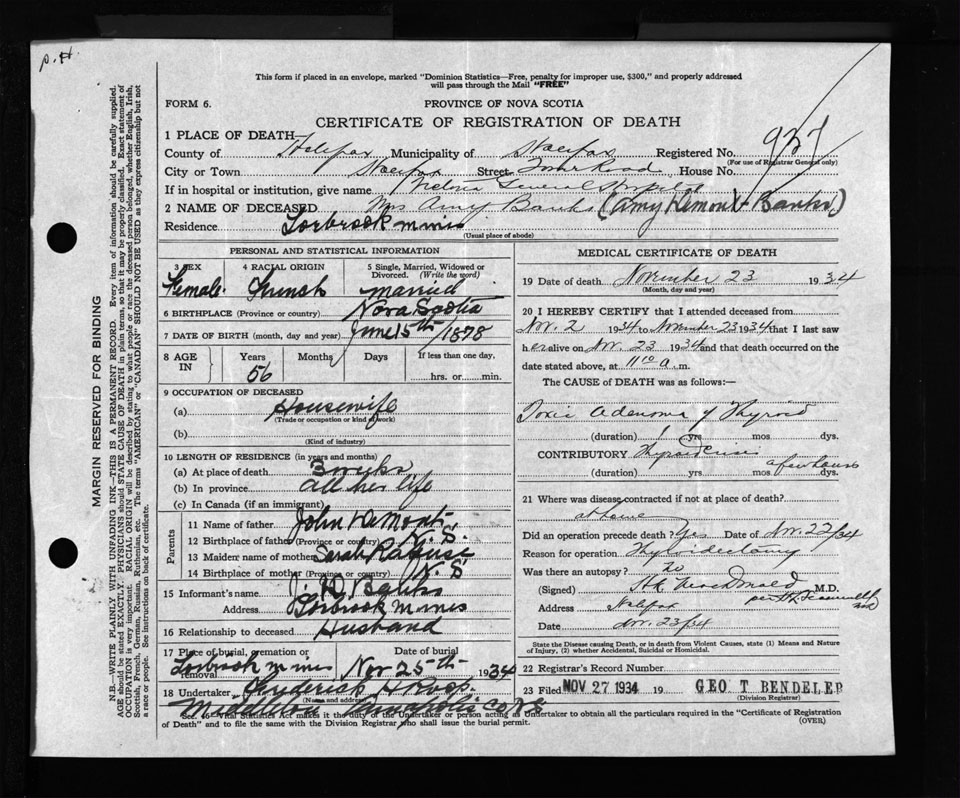 P.H.
This form if placed in an envelope, marked "Dominion Statistics—Free, penalty for improper use, $300," and properly addressed
will pass through the Mail "FREE"
FORM 6.
PROVINCE OF NOVA SCOTIA
CERTIFICATE OF REGISTRATION OF DEATH
937
1 PLACE OF DEATH—
County of Halifax Municipality of Halifax Registered No.
(For use of Registrar General only)
City or Town Halifax Street House No.
If in hospital or institution, give name Victoria General Hospital
2 NAME OF DECEASED Mrs Amy Banks (Amy Demont Banks)
Residence Torbrook mines
(Usual place of abode)
PERSONAL AND STATISTICAL INFORMATION
3 SEX 4 RACIAL ORIGIN 5 Single, Married, Widowed or
Divorced. (Write the word)
Female French married
6 BIRTHPLACE (Province or country) Nova Scotia
7 DATE OF BIRTH (month, day and year) June 15th/1878
8 AGE IN Years Months Days If less than one day,
56 hrs. or min.
9 OCCUPATION OF DECEASED
(a) Housewife
(Trade or occupation or kind of work)
(b)
(Kind of industry)
10 LENGTH OF RESIDENCE (in years and months)
(a) At place of death 3 weeks
(b) In province all her life
(c) In Canada (if an immigrant)
Parents
11 Name of father John DeMont
12 Birthplace of father (Province or country) N.S.
13 Maiden name of mother Sarah
14 Birthplace of mother (Province or country) N.S
15 Informant's name Banks
Address Torbrook mines
16 Relationship to deceased Husband
17 Place of burial, cremation or removal Date of burial
Torbrook mines Nov 25th 1934
18 Undertaker Frederick H Roop
(Name and address)
Middleton Annapolis Co NS
MEDICAL CERTIFICATE OF DEATH
19 Date of death November 23 1934
(Month, day and year)
20 I HEREBY CERTIFY that I attended deceased from
Nov. 2 1934 to November 23 1934 that I last saw
her alive on Nov. 23 1934 and that death occurred on the
date stated above, at 11 10 a.m.
The CAUSE of DEATH was as follows:—
Toxic adenoma of Thyroid
(duration) 1 yrs. mos. dys.
CONTRIBUTORY
(duration) yrs. a few hours mos. dys.
21 Where was disease contracted if not at place of death?
at home
Did an operation precede death? Yes Date of Nov. 22/34
Reason for operation Thyroidectomy
Was there an autopsy? no
(Signed) MacDonald M.D.
Address Halifax
Date Nov. 23/34
State the Disease causing Death, or in death from Violent Causes, state (1) Means and Nature
of Injury, (2) whether Accidental, Suicidal or Homicidal.
22 Registrar's Record Number
23 Filed NOV 27 1934 19 GEO T BENDELER
(Division Registrar)
Sec. 46 Vital Statistics Act makes it the duty of the Undertaker or person acting as Undertaker to obtain all the particulars required in the "Certificate of Registration
of Death" and to file the same with the Division Registrar who shall issue the burial permit.
(OVER)
MARGIN RESERVED FOR BINDING
N.B.—WRITE PLAINLY WITH UNFADING INK—THIS IS A PERMANENT RECORD. Every item of information should be carefully supplied.
AGE should be stated EXACTLY. PHYSICIANS should STATE CAUSE OF DEATH in plain terms, so that it may be properly classified. Exact statement of
OCCUPATION is very important. RACIAL ORIGIN will be described by stating to what people or race the deceased person belonged, whether English, Irish,
Scottish, French, German, Russian, Ruthenian, etc. The terms "AMERICAN" or "CANADIAN" SHOULD NOT BE USED as they express citizenship but not
a race or people. See instructions on back of certificate.